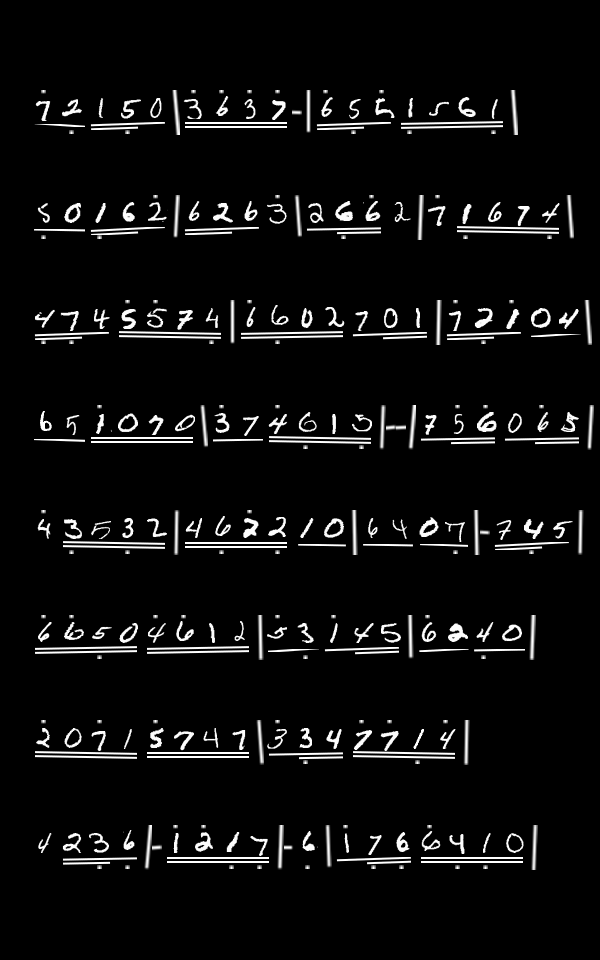 72150|3637-|6551561
50162|6263|2662|71674
4745574|6602701|72104
651070|374615|--|756065
43532|462210|6407|-745
66504612|53145|6240
20715747|3347714
4236|-1217|-6|1766410